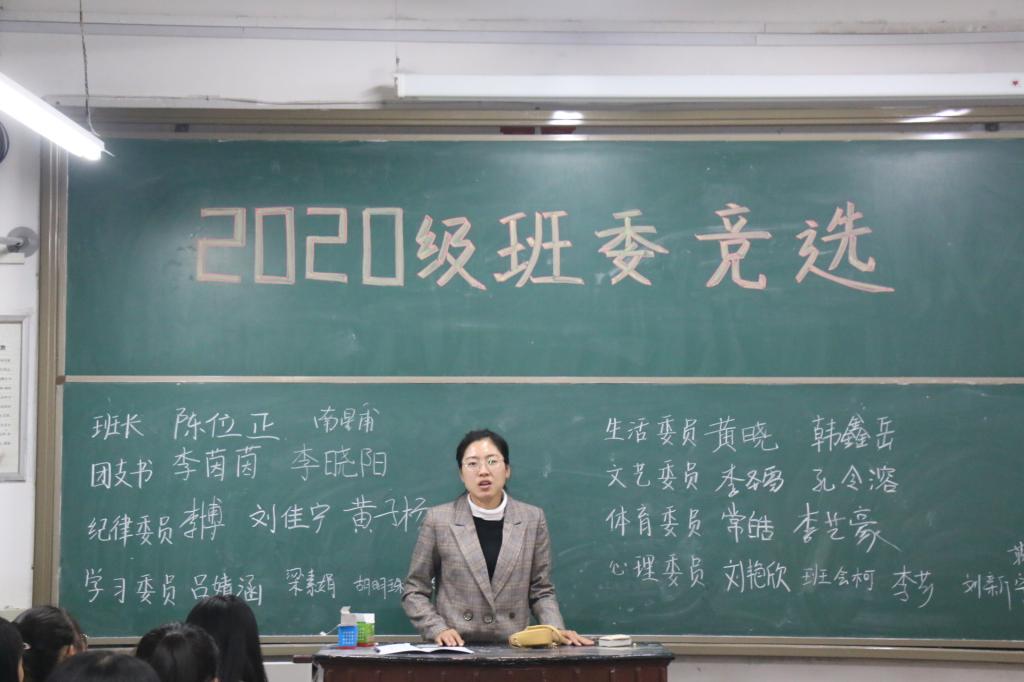 2020级班委竞选
班长 陈位正 南星甫
团支书 李茵茵 李晓阳
纪律委员 李博 刘佳宁 黄子杨
学习委员 吕婧涵
生活委员 黄晓 韩鑫岳
文艺委员 孔令溶
体育委员 常皓 李艺豪
心理委员 刘艳欣 班会柯 李莎 刘新